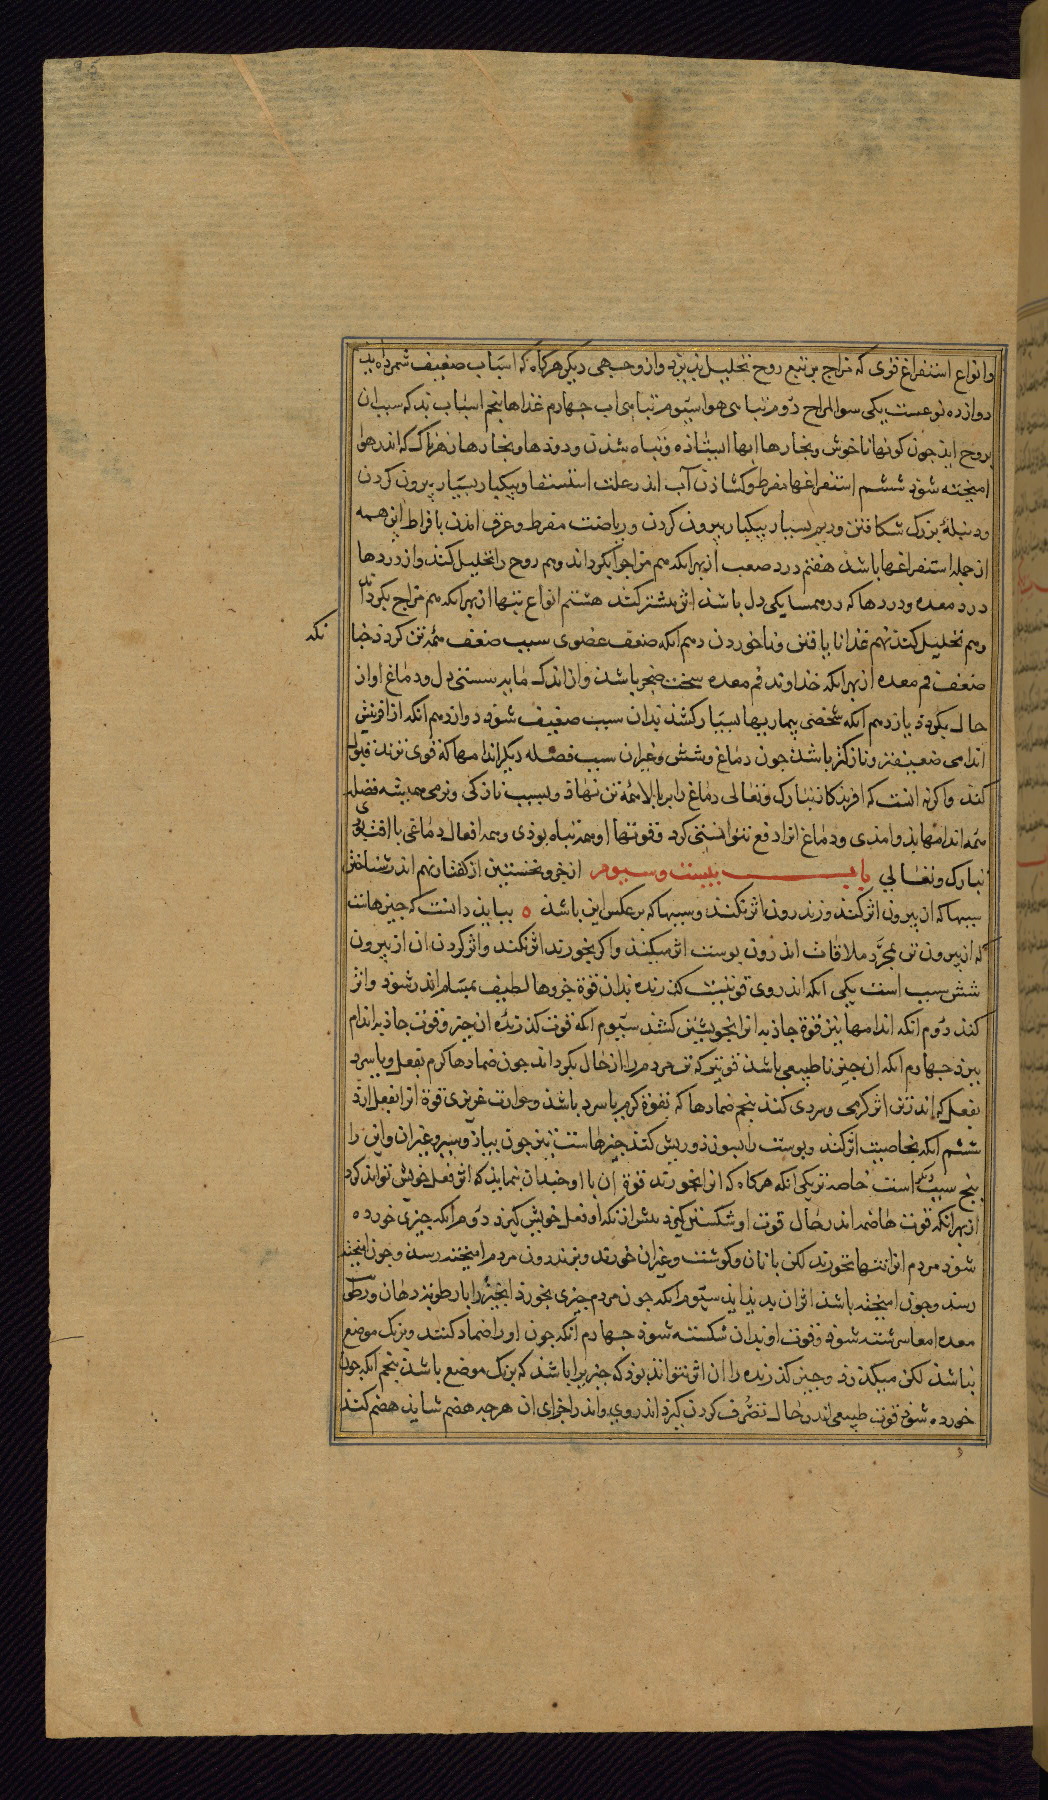 وانواع استفراغ قوی که مزاج بر تبع روح تحلیل پذیرد واز وجهی دیکر هرکاه که اسباب ضعیف شمرده آید
دوازده نوعست یکی سوالمزاج دوم تباهی هوا سیوم تباهی اب جهارم غذاها پنجم اسباب بد که سبب ان
بروح اید جون کونها ناخوش وبخارها ابها ایستاذه وتباه شذن ودودها وبخارها زهرناک که اندر هوا
امیخته شوذ ششم استفراغها مفرط وکشاذن آب اندر علت استسقا وبیکبار بسیار بیرون کردن
ودبیلهٔ بزرک شکافتن وریم بسیار بیکبار بیرون کردن وریاضت مفرط وعرق امذن بافراط این همه
از جمله استفراغها باشذ هفتم درد صعب از بهر انکه هم مزاج را بکرداند وهم روح را تحلیل کند واز دردها
درد معده ودردها که در همسایکی دل باشذ اثر بیشتر کند هشتم انواع تبها از بهر انکه هم مزاج بکرداند
وهم تحلیل کند نهم غذا نایافتن وناخوردن دهم انکه ضعف عضوی سبب ضعف همه تن کردذ جنا
نکه
ضعف فم معده از بهر انکه خداوند فم معده سخت ضجر باشد واز اندک مایه سستی دل ودماغ او از
حال بکردذ یازدهم انکه شخصی بیماریها بسیار کشذ بذان سبب ضعیف شوذ دوازدهم انکه از افرینش
اندامی ضعیفتر ونازکتر باشذ جون دماغ وشش وغیران سبب فضله دیکر اندامها که قوی ترند قبول
کند واکر نه انست که افریذکار تبارک وتعالی دماغ را بر بالا همه تن نهاذ وبسبب نازکی ونرمی همیشه فضله
همه اندامها بذو امذی ودماغ انرا دفع نتوانستی کرد وقوتها او همه تباه بوذی وهمه افعال دماغی باافت بوذی
تبارک وتعالی باب بیست وسیوم از جزو نخستین از کفتار نهم اندر شناختن
سببها که از بیرون اثر کند وز درون اثر نکند وسببها که برعکس این باشذ ه ببایذ دانست که جیزهاست
که از بیرون تن بمجرد ملاقات اندرون پوست اثر میکند واکر بخورند اثر نکند واثر کردن ان از بیرون
شش سبب است یکی انکه اندر وی قوتیست کذرنده بذان قوة جزوها لطیف بمسام اندر شوذ واثر
کند دوم انکه اندامها نیز قوة جاذبه انرا بخویشتن کشذ سیوم انکه قوت کذرندهٔ ان جیز وقوت جاذبه اندام
بیزد جهارم انکه ان جیز ناطبیعی باشذ قوتی که تن مردم را از حال بکرداند جون ضمادها کرم بفعل ویا سرد
بفعل که اندر تن اثر کرمی وسردی کند پنجم ضمادها که بقوة کرم یا سرد باشذ وحرارت غریزی قوة انرا بفعل ارذ
ششم انکه بخاصیت اثر کند وپوست را بسوزد وریش کند جیزهاست نیز جون پیاز وسیر وغیران واین را
پنج سبب دیکر است خاصه تر یکی انکه هرکاه که انرا بخورند قوة ان با او جندان نماید که اثر فعل خویش تواند کرد
از بهر انکه قوت هاضمه اندر حال قوت او شکستن کیرد پیش از انکه او فعل خویش کیرد دوم انکه جیزی خورده
شوذ مردم انرا تنها نخورند لکن بانان وکوشت وغیران خورند وبز ندرون مردم امیخته رسد وجون امیخته
رسد وجون امیخته باشذ اثر ان بدید نیاید سیوم انکه جون مردم جیزی بخورد انجیز را با رطوبت دهان ورطوبت
معده امعا سرشته شود وقوت او بذان شکسته شوذ جهارم انکه جون او را ضماد کنند وبریک موضع
نباشذ لکن میکذرذ وجیز کذرنده را ان اثر نتواند بوذ که جیزیرا باشذ که بریک موضع باشذ پنجم انکه جون
خورده شوذ قوت طبیعی اندر حال تصرف کردن کیرذ اندر وی واندر اجزای ان هرجه هضم شاید هضم کند